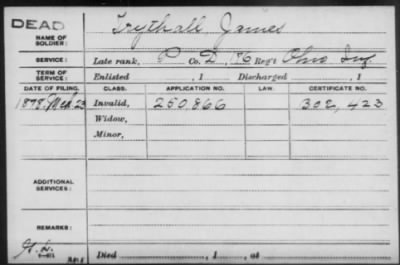 DEAD
NAME OF SOLDIER: Trythall, James
SERVICE: Late rank, P Co. D, 186 Reg't Ohio Inf.
TERM OF SERVICE: Enlisted , 1 Discharged , 1
DATE OF FILING. CLASS. APPLICATION NO. LAW. CERTIFICATE NO.
1878, Mch. 23 Invalid, 250,866 302,423
Widow,
Minor,
ADDITIONAL SERVICES:
REMARKS:
Died , 1 , at